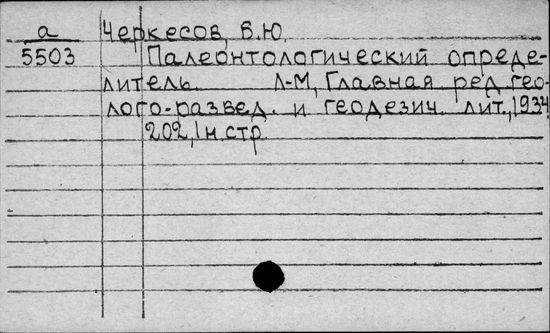 а Черкесов, В.Ю.
5503 Палеонтологический опреде-
литель. Л-М, Главная ред. гео-
лого-развед. и геодезич. лит., 1934
202, 1 н. стр.